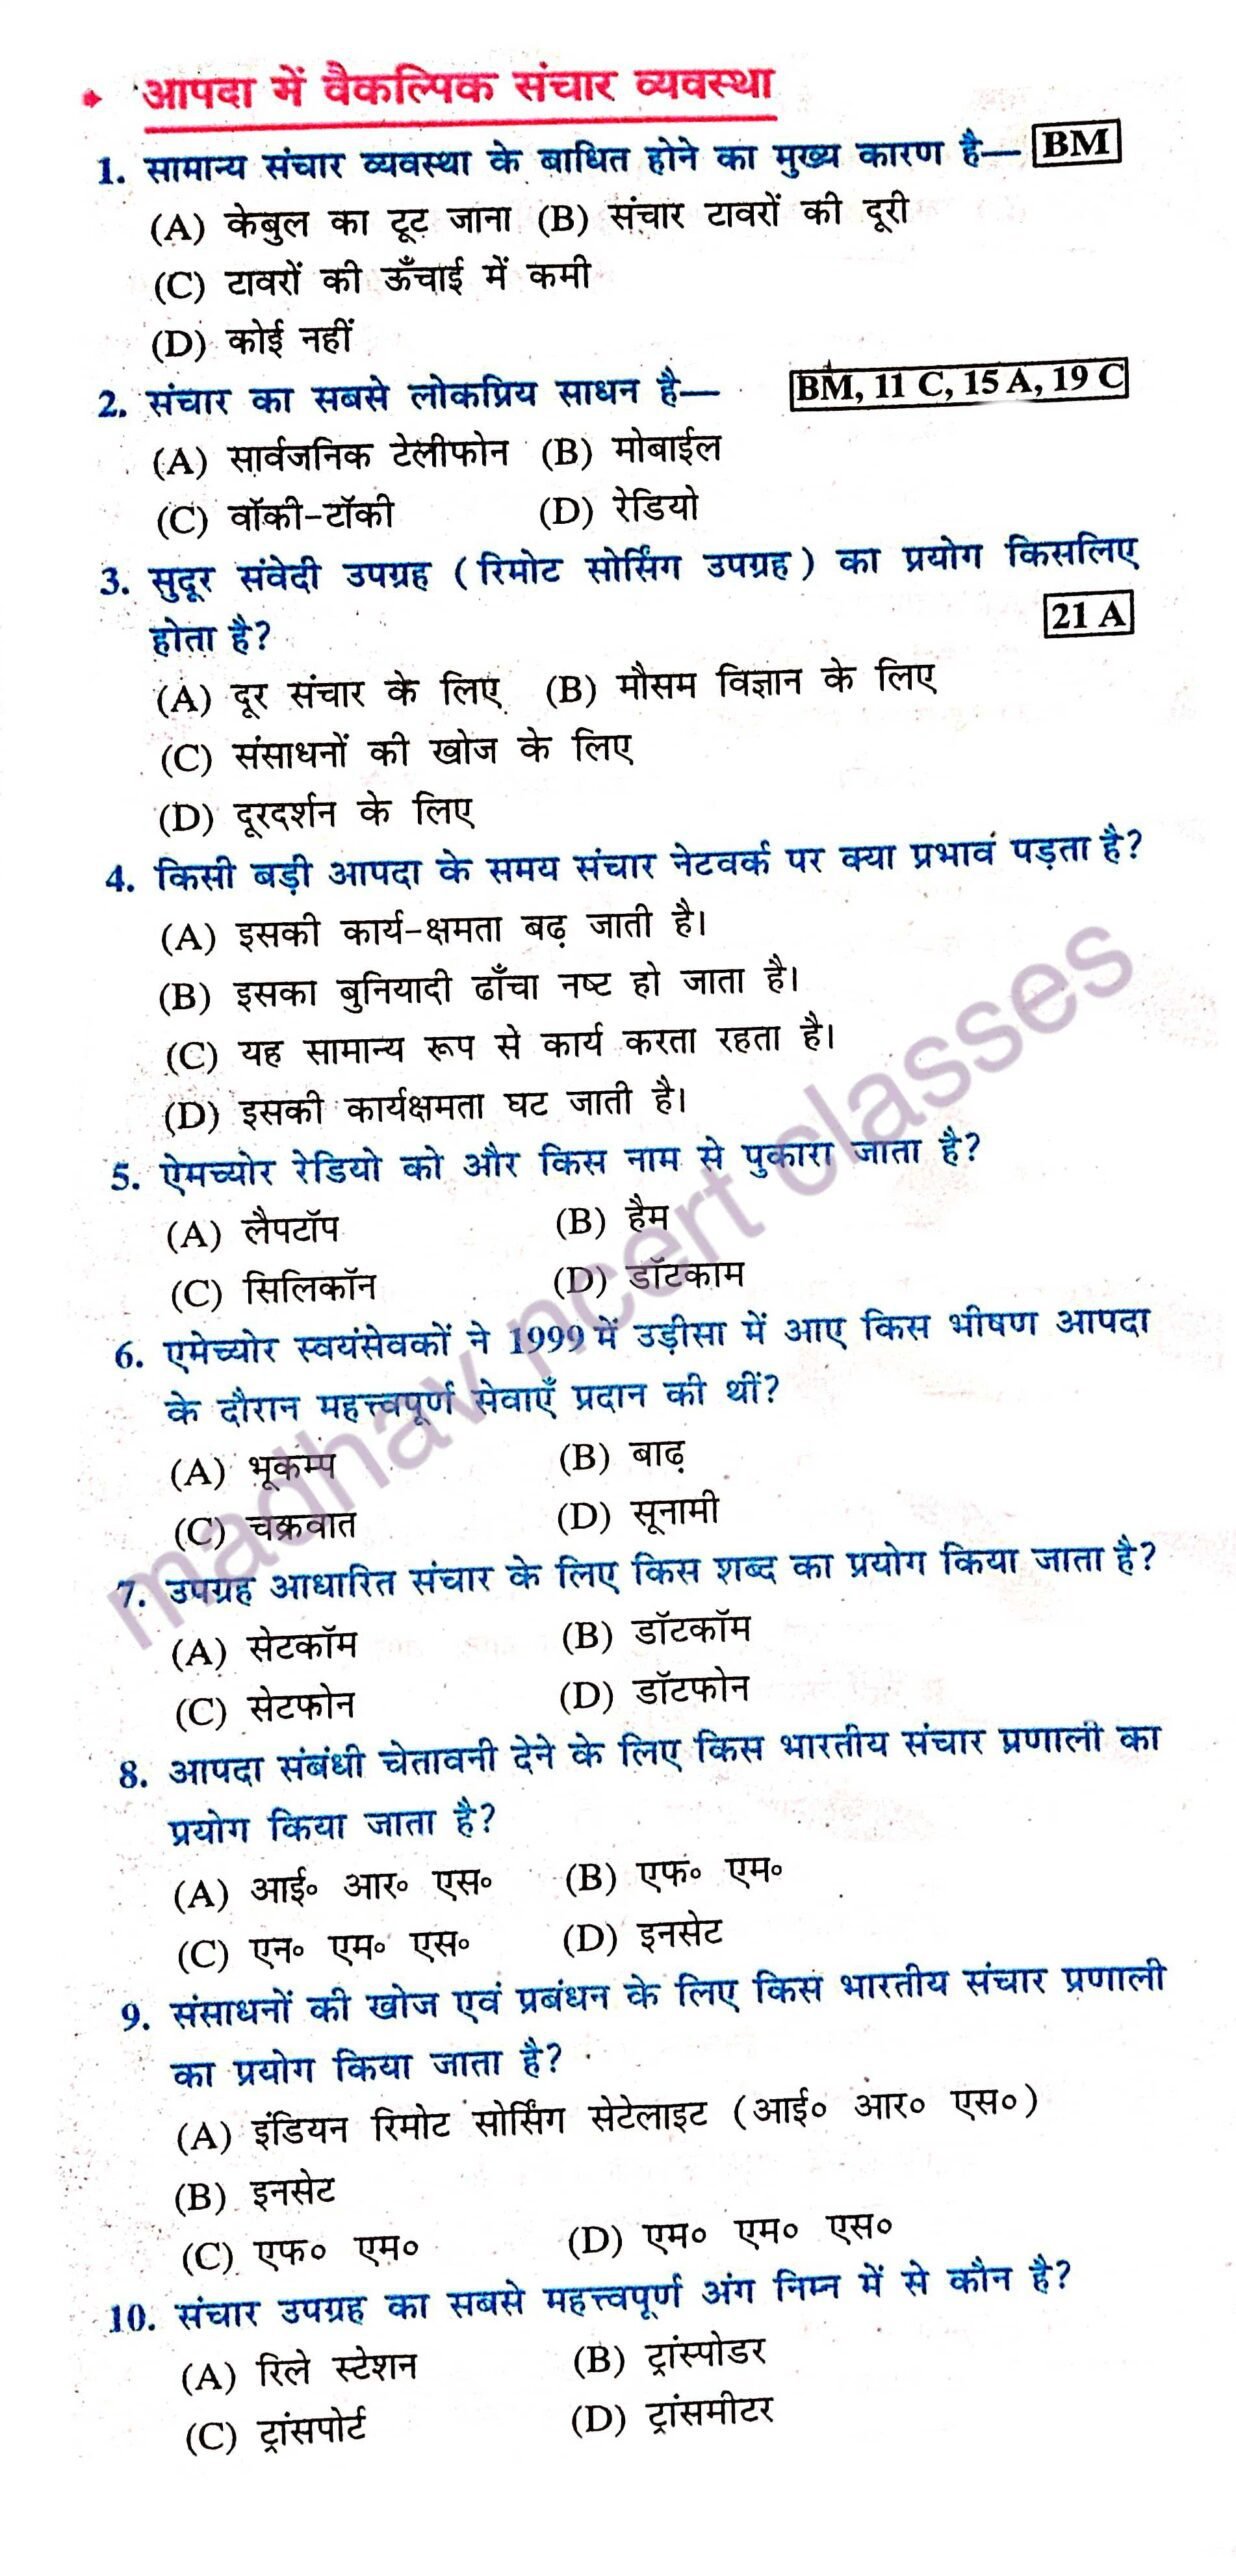 आपदा में वैकल्पिक संचार व्यवस्था
1. सामान्य संचार व्यवस्था के बाधित होने का मुख्य कारण है— BM
(A) केबुल का टूट जाना (B) संचार टावरों की दूरी
(C) टावरों की ऊँचाई में कमी
(D) कोई नहीं
2. संचार का सबसे लोकप्रिय साधन है— BM, 11 C, 15 A, 19 C
(A) सार्वजनिक टेलीफोन (B) मोबाईल
(C) वॉकी-टॉकी (D) रेडियो
3. सुदूर संवेदी उपग्रह (रिमोट सोर्सिंग उपग्रह) का प्रयोग किसलिए
होता है? 21 A
(A) दूर संचार के लिए (B) मौसम विज्ञान के लिए
(C) संसाधनों की खोज के लिए
(D) दूरदर्शन के लिए
4. किसी बड़ी आपदा के समय संचार नेटवर्क पर क्या प्रभाव पड़ता है?
(A) इसकी कार्य-क्षमता बढ़ जाती है।
(B) इसका बुनियादी ढाँचा नष्ट हो जाता है।
(C) यह सामान्य रूप से कार्य करता रहता है।
(D) इसकी कार्यक्षमता घट जाती है।
5. ऐमच्योर रेडियो को और किस नाम से पुकारा जाता है?
(A) लैपटॉप (B) हैम
(C) सिलिकॉन (D) डॉटकाम
6. एमेच्योर स्वयंसेवकों ने 1999 में उड़ीसा में आए किस भीषण आपदा
के दौरान महत्त्वपूर्ण सेवाएँ प्रदान की थीं?
(A) भूकम्प (B) बाढ़
(C) चक्रवात (D) सूनामी
7. उपग्रह आधारित संचार के लिए किस शब्द का प्रयोग किया जाता है?
(A) सेटकॉम (B) डॉटकॉम
(C) सेटफोन (D) डॉटफोन
8. आपदा संबंधी चेतावनी देने के लिए किस भारतीय संचार प्रणाली का
प्रयोग किया जाता है?
(A) आई० आर० एस० (B) एफ० एम०
(C) एन० एम० एस० (D) इनसेट
9. संसाधनों की खोज एवं प्रबंधन के लिए किस भारतीय संचार प्रणाली
का प्रयोग किया जाता है?
(A) इंडियन रिमोट सोर्सिंग सेटेलाइट (आई० आर० एस०)
(B) इनसेट
(C) एफ० एम० (D) एम० एम० एस०
10. संचार उपग्रह का सबसे महत्त्वपूर्ण अंग निम्न में से कौन है?
(A) रिले स्टेशन (B) ट्रांस्पोडर
(C) ट्रांसपोर्ट (D) ट्रांसमीटर
madhav ncert classes